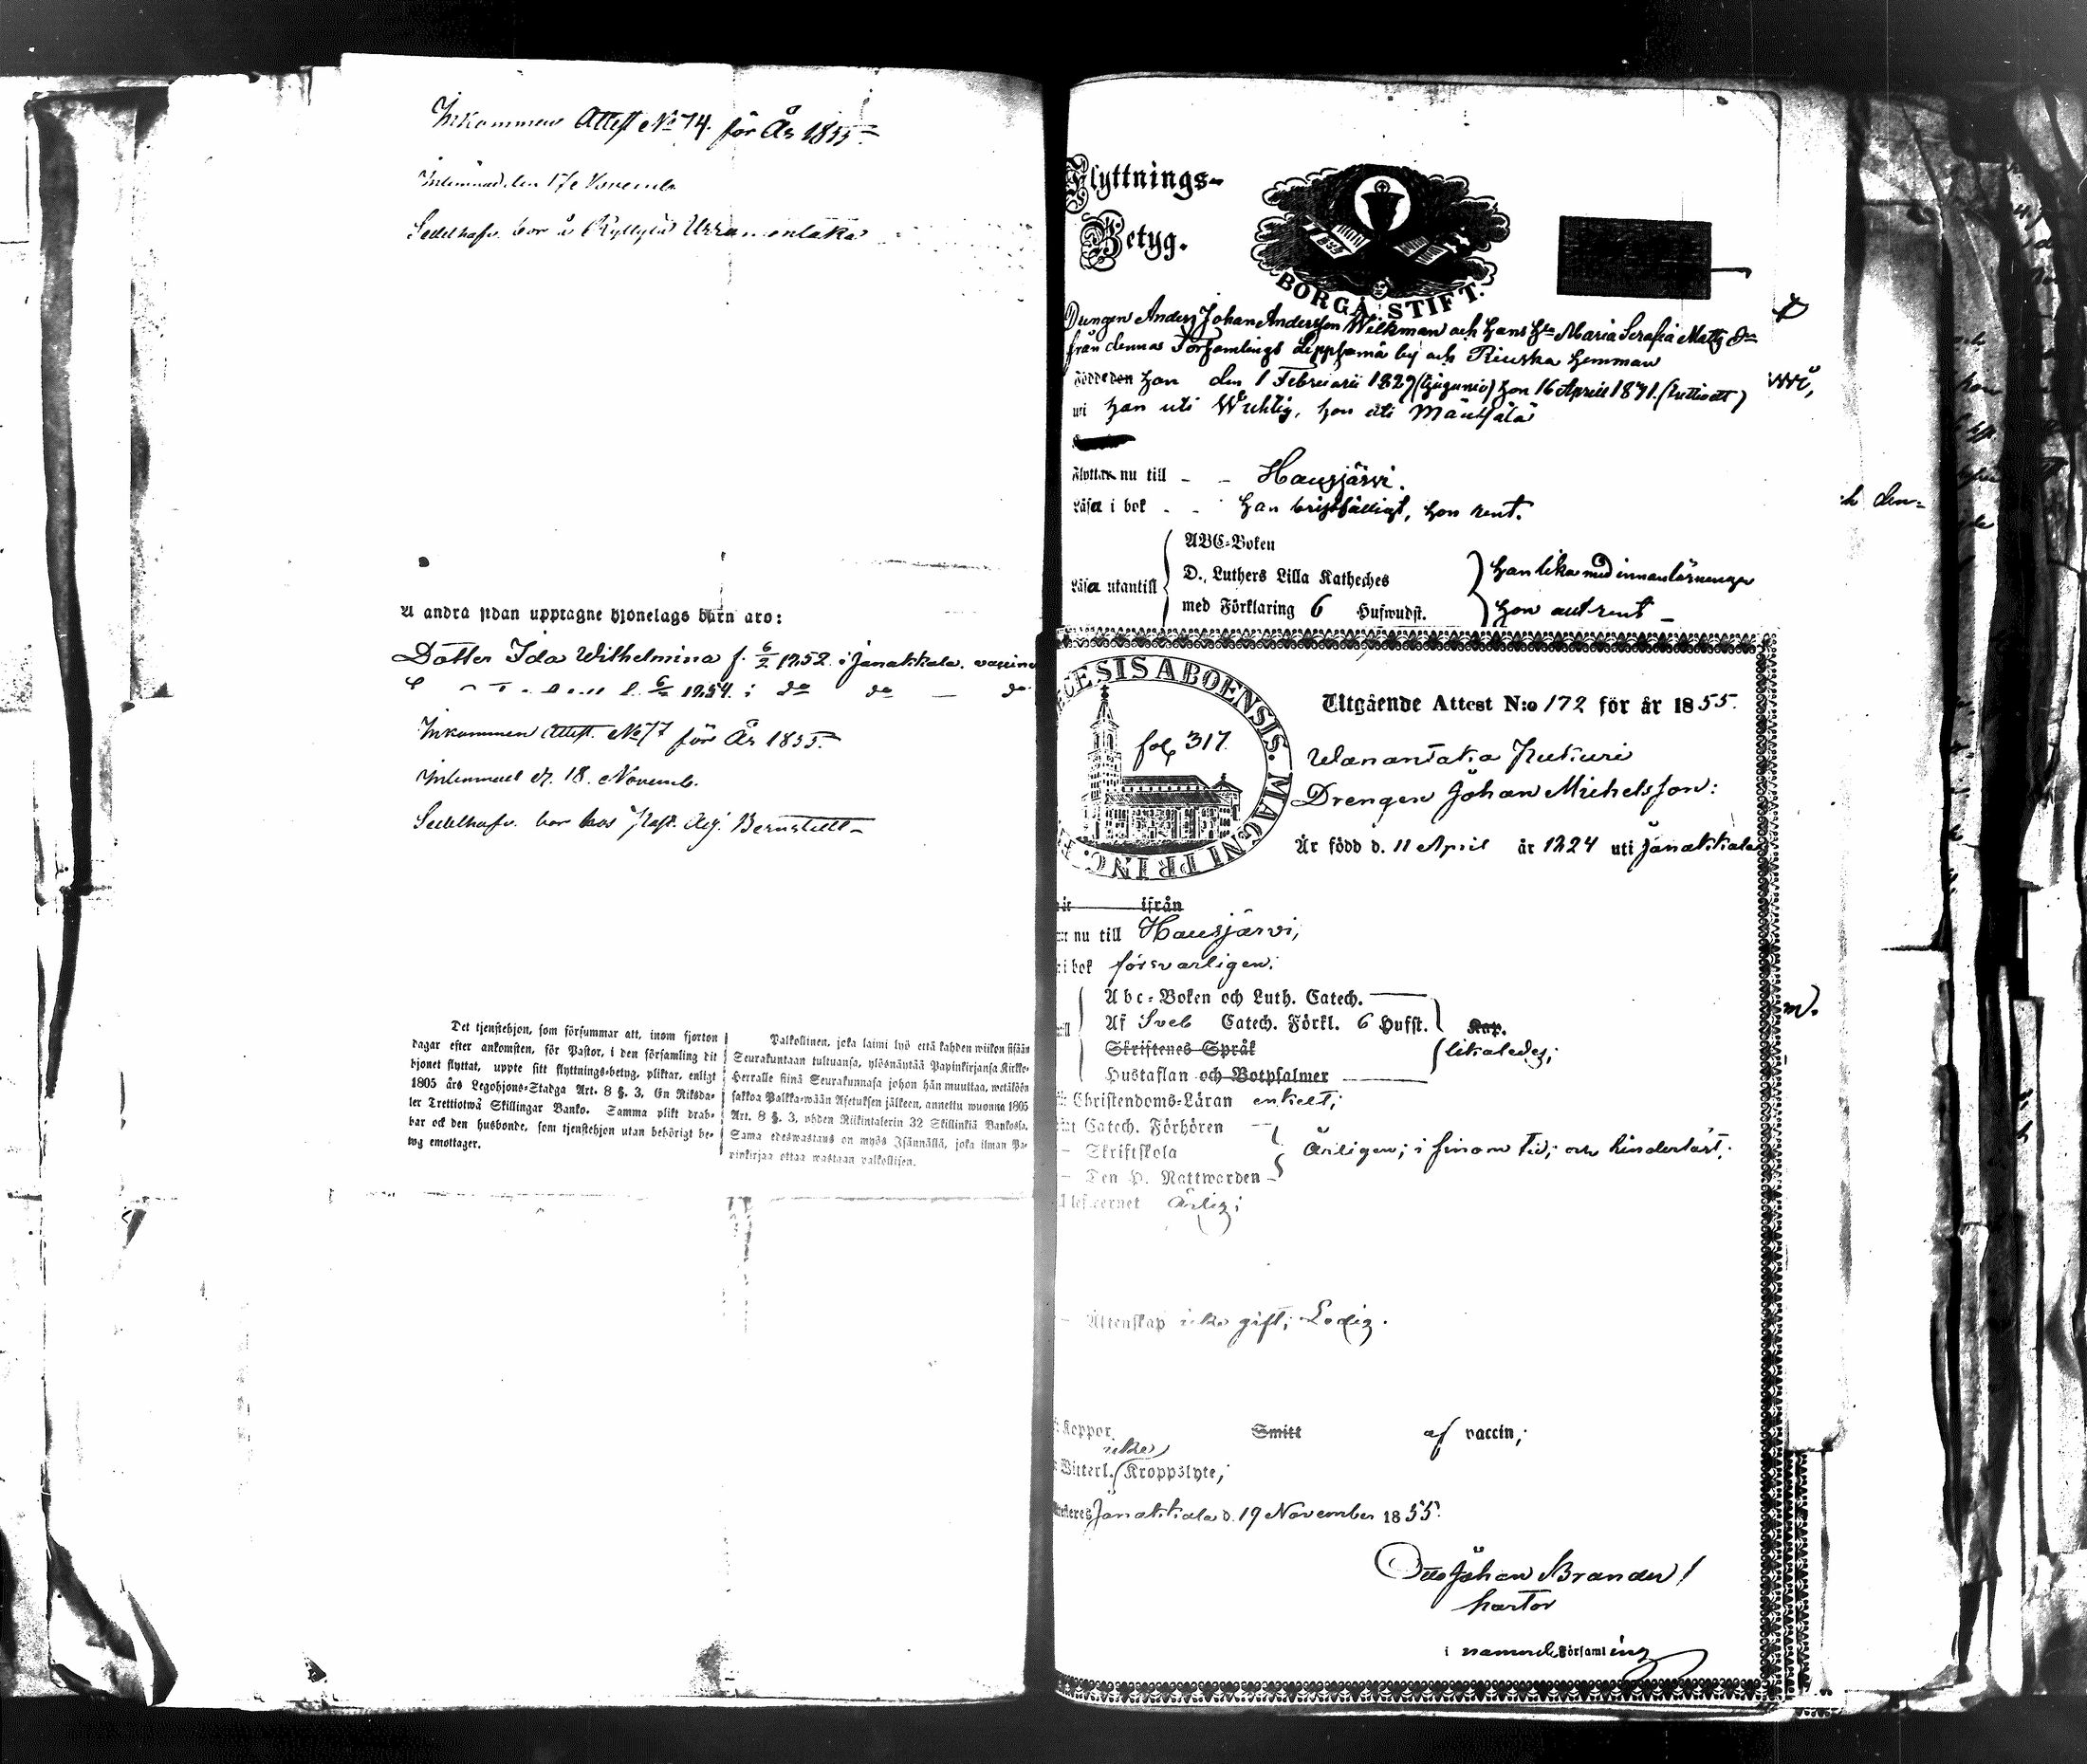 Inkommen Attest No 74. för År 1855
Inlemnad den 17 Novemb.
Sedelhafv. bor å Ryttylä
å andra sidan upptagne hjonelags barn äro:
Dotter Ida Wilhelmina f. 6/2 1852. i Janakkala. vaccine
6/ 1854. i do do — do
Inkommen Attest. No 77 för År 1855.
Inlemnad d. 18. Novemb.
Sedelhafv. bor hos
Det tjenstehjon, som försummar att, inom fjorton
dagar efter ankomsten, för Pastor, i den församling dit
hjonet flyttat, uppte sitt flyttnings-betyg, pliktar, enligt
1805 års Legohjons-Stadga Art. 8 §. 3, En Riksda-
ler Trettiotwå Skillingar Banko. Samma plikt drab-
bar ock den husbonde, som tjenstehjon utan behörigt be-
tyg emottager.
Palkollinen, joka laimi lyö että kahden wiikon sisään
Seurakuntaan tultuansa, ylösnäyttää Papinkirjansa Kirkko-
Herralle siinä Seurakunnasa johon hän muuttaa, wetäköön
sakkoa Palkka-wään Asetuksen jälkeen, annettu wuonna 1805
Art. 8 §. 3, yhden Riikintalerin 32 Skillinkiä Bankosa.
Sama edeswastaus on myös Isännällä, joka ilman Pa-
pinkirjaa ottaa wastaan palkollisen.
Flyttnings-
Betyg.
1834
BORGÅ STIFT.
Drengen Anders Johan Andersson Wilkman och hans Hu Maria Serafia Matts Dr
från denna Församlings by och hemman
Född den han den 1 Februarii 1829 (tjugunio) hon 16 Aprill 1831. (trettioett)
uti han uti Wichtig, hon uti Mäntsälä
Flyttar nu till - - Hausjärvi.
Läsa i bok - - han bristfälligt, hon rent.
Läsa utantill
ABC-Boken
D. Luthers Lilla Katheches
med Förklaring 6 Hufwudst.
han lika med innanläsningen
hon rent -
DIOECESIS ABOENSIS. MAGNI PRINC. F
fol. 317.
Utgående Attest N:o 172 för år 1855.
Wanantaka
Drengen Johan Michelsson:
Är född d. 11 April år 1824 uti Janakkala
ifrån
nu till Hausjärvi,
i bok försvarligen;
Abc-Boken och Luth. Catech.
Af Sveb Catech. Förkl. 6 Hufst.
Skriftenes Språk
Hustaflan och Botpsalmer
Kap.
likaledes;
Christendoms-Läran enkelt;
Catech. Förhören
- Skriftskola
- Den H. Nattwarden
Årligen; i sinom tid; och hindertäst.
Ärlig;
- Äktenskap icke gift; Ledig.
Koppor Smitt af vaccin;
icke
Witterl. Kroppslyte;
Janakkala d. 19 November 1855.
Otto Johan Brander
i nämnde Församling